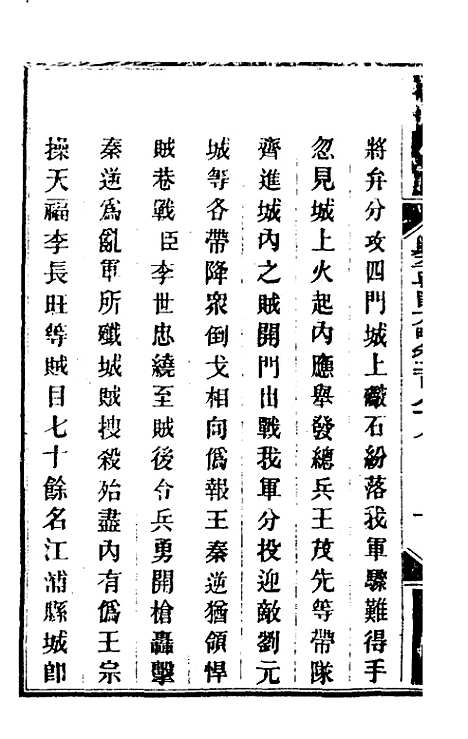 將弁分攻四門城上礮石紛落我軍驟難得手
忽見城上火起內應舉發總兵王茂先等帶隊
齊進城內之賊開門出戰我軍分投迎敵劉元
城等各帶降衆倒戈相向僞報王秦逆猶領悍
賊巷戰臣李世忠繞至賊後令兵勇開槍轟擊
秦逆爲亂軍所殲城賊搜殺殆盡內有僞王宗
操天福李長旺等賊目七十餘名江浦縣城卽